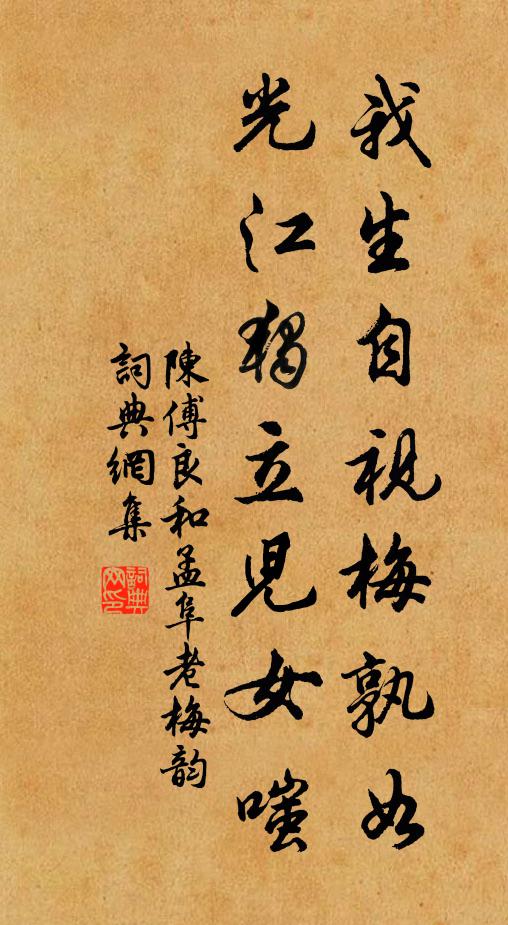 我生自視梅孰如
光江獨立兒女嗤
陳傅良和孟阜老梅韵
詞典網集
詞典
网印